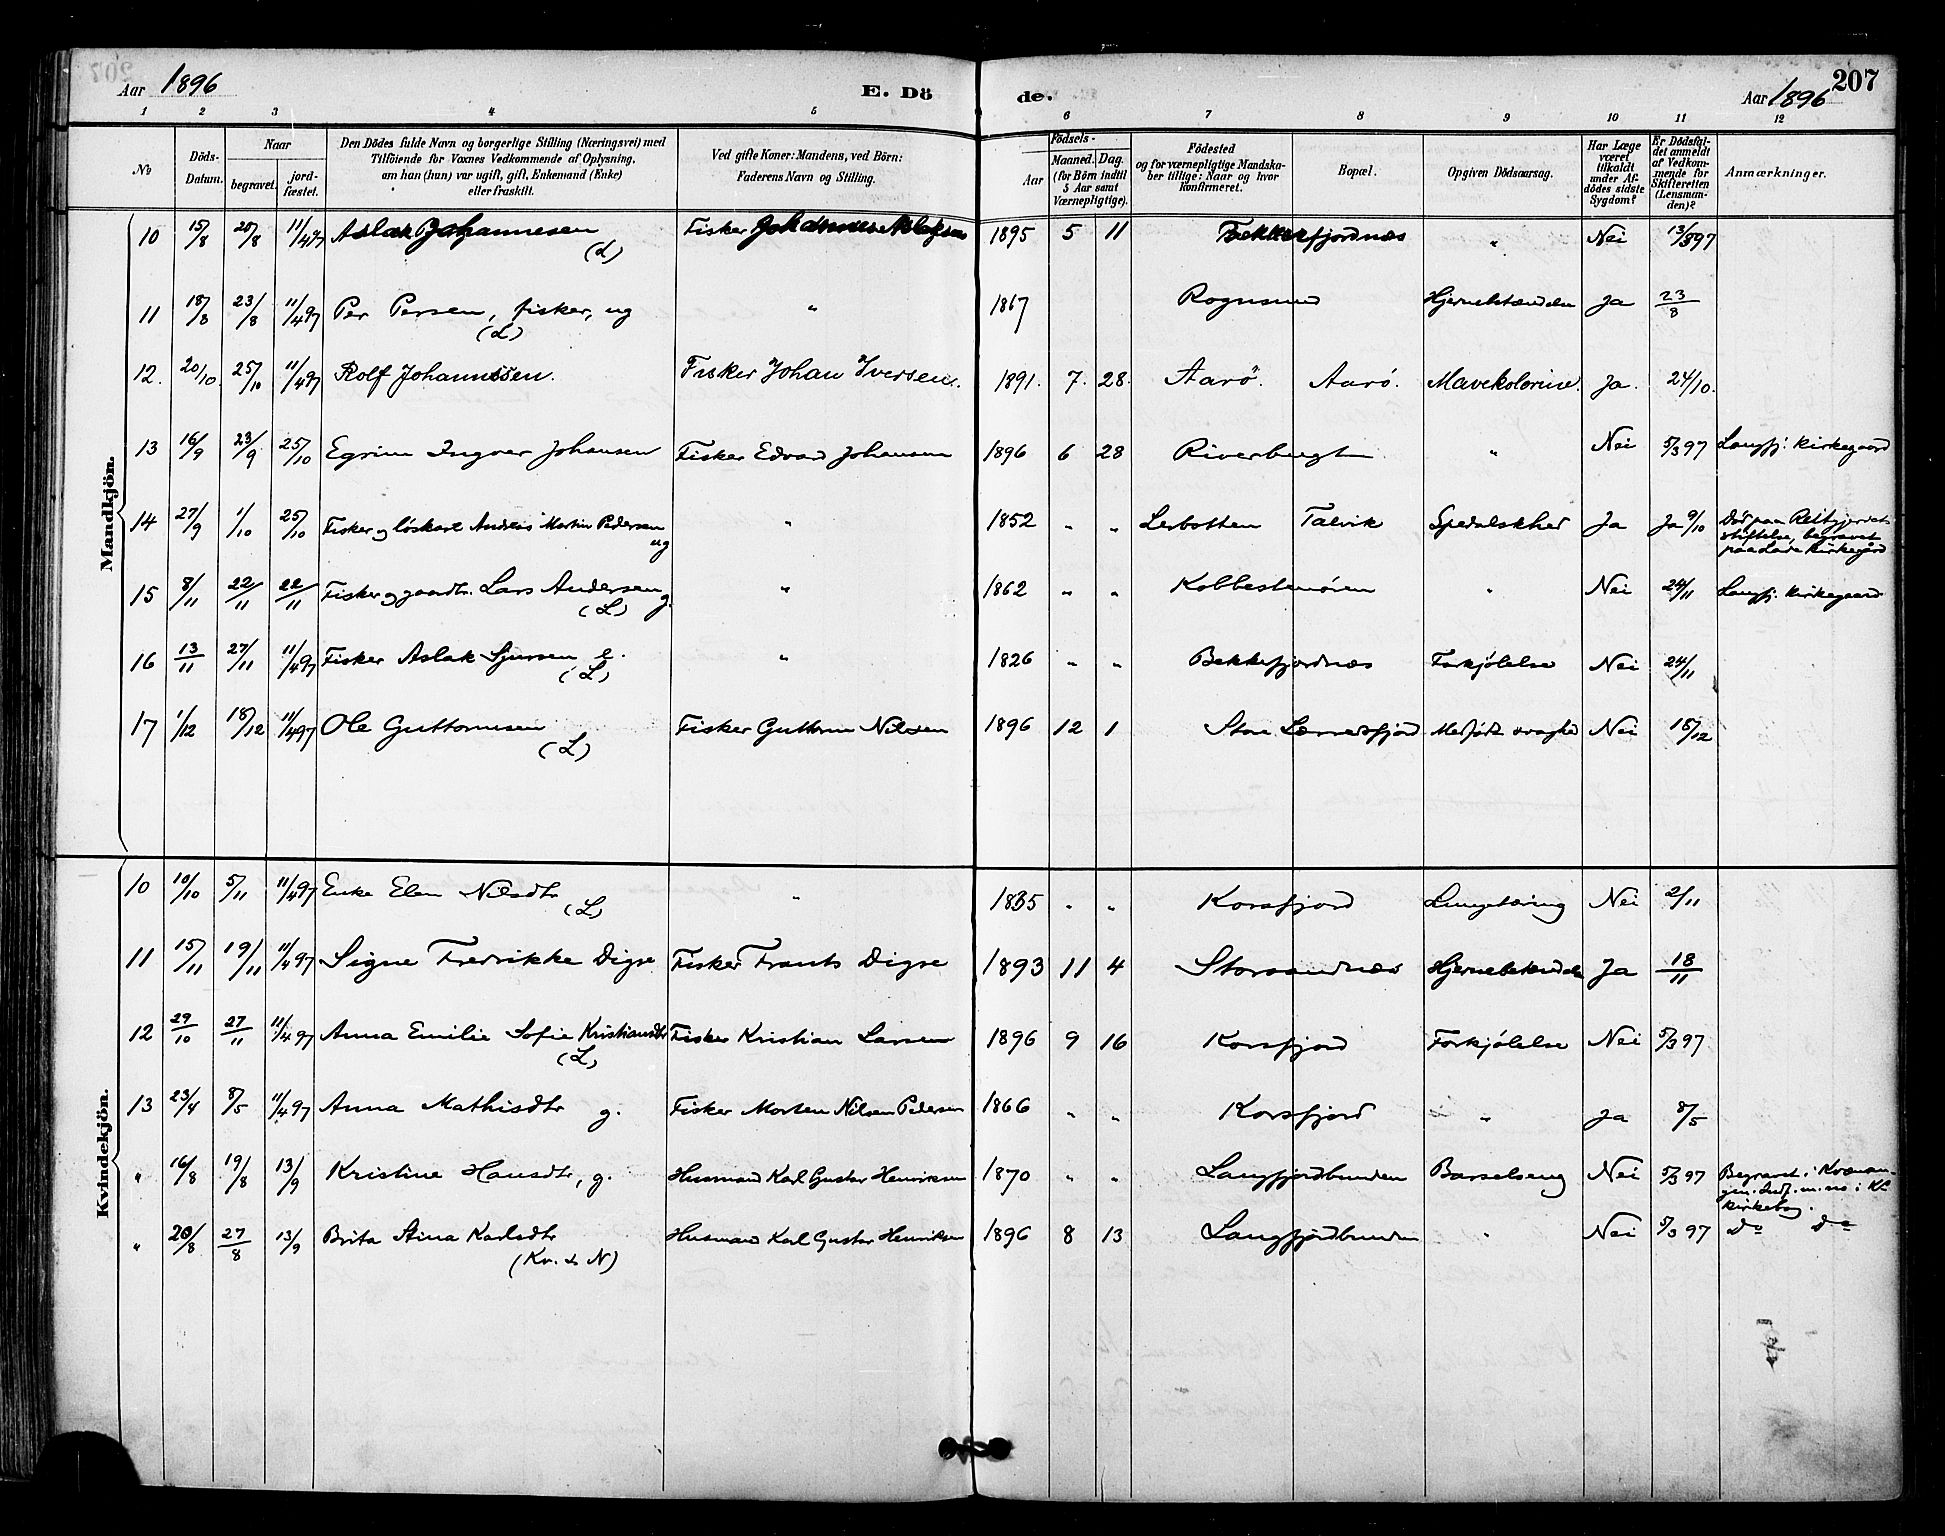 207
Aar 1896
E. Dö
de.
Aar 1896
1 2 3 4 5 6 7 8 9 10 11 12
No
Döds-Datum.
Naar
begravet.
jord-fæstet.
Den Dödes fulde Navn og borgerlige Stilling (Næringsvei) med
Tilföiende for Voxnes Vedkommende af Oplysning,
om han (hun) var ugift, gift, Enkemand (Enke)
eller fraskilt.
Ved gifte Koner: Mandens, ved Börn:
Faderens Navn og Stilling.
Födsels-
Aar
Maaned. Dag.
(for Börn indtil
5 Aar samt
Værnepligtige).
Födested
og for værnepligtige Mandska-
ber tillige: Naar og hvor
konfirmeret.
Bopæl.
Opgiven Dödsaarsag.
Har Læge
været
tilkaldt
under Af-
dödes sidste
Sygdom?
Er Dödsfal-
det anmeldt
af Vedkom-
mende for
Skifteretten
(Lensman-
den)?
Anmærkninger.
Mandkjön.
10 15/8 20/8 11/4 97 Aslak Johannesen Fisker Johannes Aslaksen 1895 5 11 Bekkerfjordnæs " Nei 13/3 97
(L)
11 18/8 23/8 11/4 97 Per Persen, fisker, ug " 1867 Rognsund Hjernebetændelse Ja 23/8
(L)
12. 20/10. 25/10 11/4 97 Rolf Johannesen. Fisker Johan Iversen. 1891. 7. 28. Aarö. Aarö. Mavekolerine. Ja. 24/10.
13 16/9 23/9 25/10 Egrim Ingver Johansen Fisker Edvard Johansen 1896 6 28 Riverbugt " Nei 5/3 97 Langfj. kirkegaard
14 27/9 1/10 25/10 Fisker og löskarl Andreas Martin Pedersen " 1852 " " Lerbotten Talvik Spedalskhed Ja Ja 9/10 Död paa Reitgjerdets
ug
stiftelse, begravet
paa Lade Kirkegård
15 8/11 22/11 22/11 Fisker og gaardbr. Lars Andersen g. " 1862 " " Kobbestenören " Nei 24/11 Langfj. kirkegaard
(L)
16 13/11 27/11 11/4 97 Fisker Aslak Sjursen e. " 1826 " " Bekkefjordnæs Forkjölelse Nei 24/11
(L)
17 1/12 18/12 11/4 97 Ole Guttormsen Fisker Guttorm Nilsen 1896 12 1 Store Lærredsfjord Medfödt svaghed Nei 15/12
(L)
Kvindekjön.
10 10/10 5/11 11/4 97 Enke Elen Nilsdtr " 1835 " " Korsfjord Lungetæring Nei 2/11
(L)
11 15/11 19/11 11/4 97 Signe Fredrikke Digre Fisker Frants Digre 1893 11 4 Storsandnæs Hjernebetændelse Ja 18/11
12 29/10 27/11 11/4 97 Anna Emilie Sofie Kristiansdtr Fisker Kristian Larsen 1896 9 16 Korsfjord Forkjölelse Nei 5/3 97
(L)
13 23/4 8/5 11/4 97 Anna Mathisdtr g. Fisker Morten Nilsen Pedersen 1866 " " Korsfjord " Ja 8/5
" 16/8 19/8 13/9 Kristine Hansdtr, g. Husmand Karl Gustav Henriksen 1870 " " Langfjordbunden Barselseng Nei 5/3 97 Begravet i Kvænan-
gen. Indf. m. no i Kv.
kirkebog.
" 20/8 27/8 13/9 Brita Aina Karlsdtr Husmand Karl Gustav Henriksen 1896 8 13 Langfjordbunden " Nei 5/3 97 Do Do
(Kv. & N)